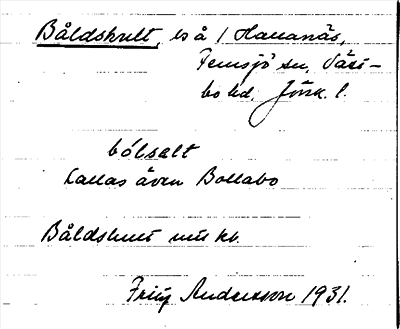 Båldshult, ls å 1 Hananäs,
Femsjö sn, Väst-
bo hd, Jönk. l.
bólsalt
kallas även Bollabo
Båldshult uni kb.
Fritz Andersson 1931.